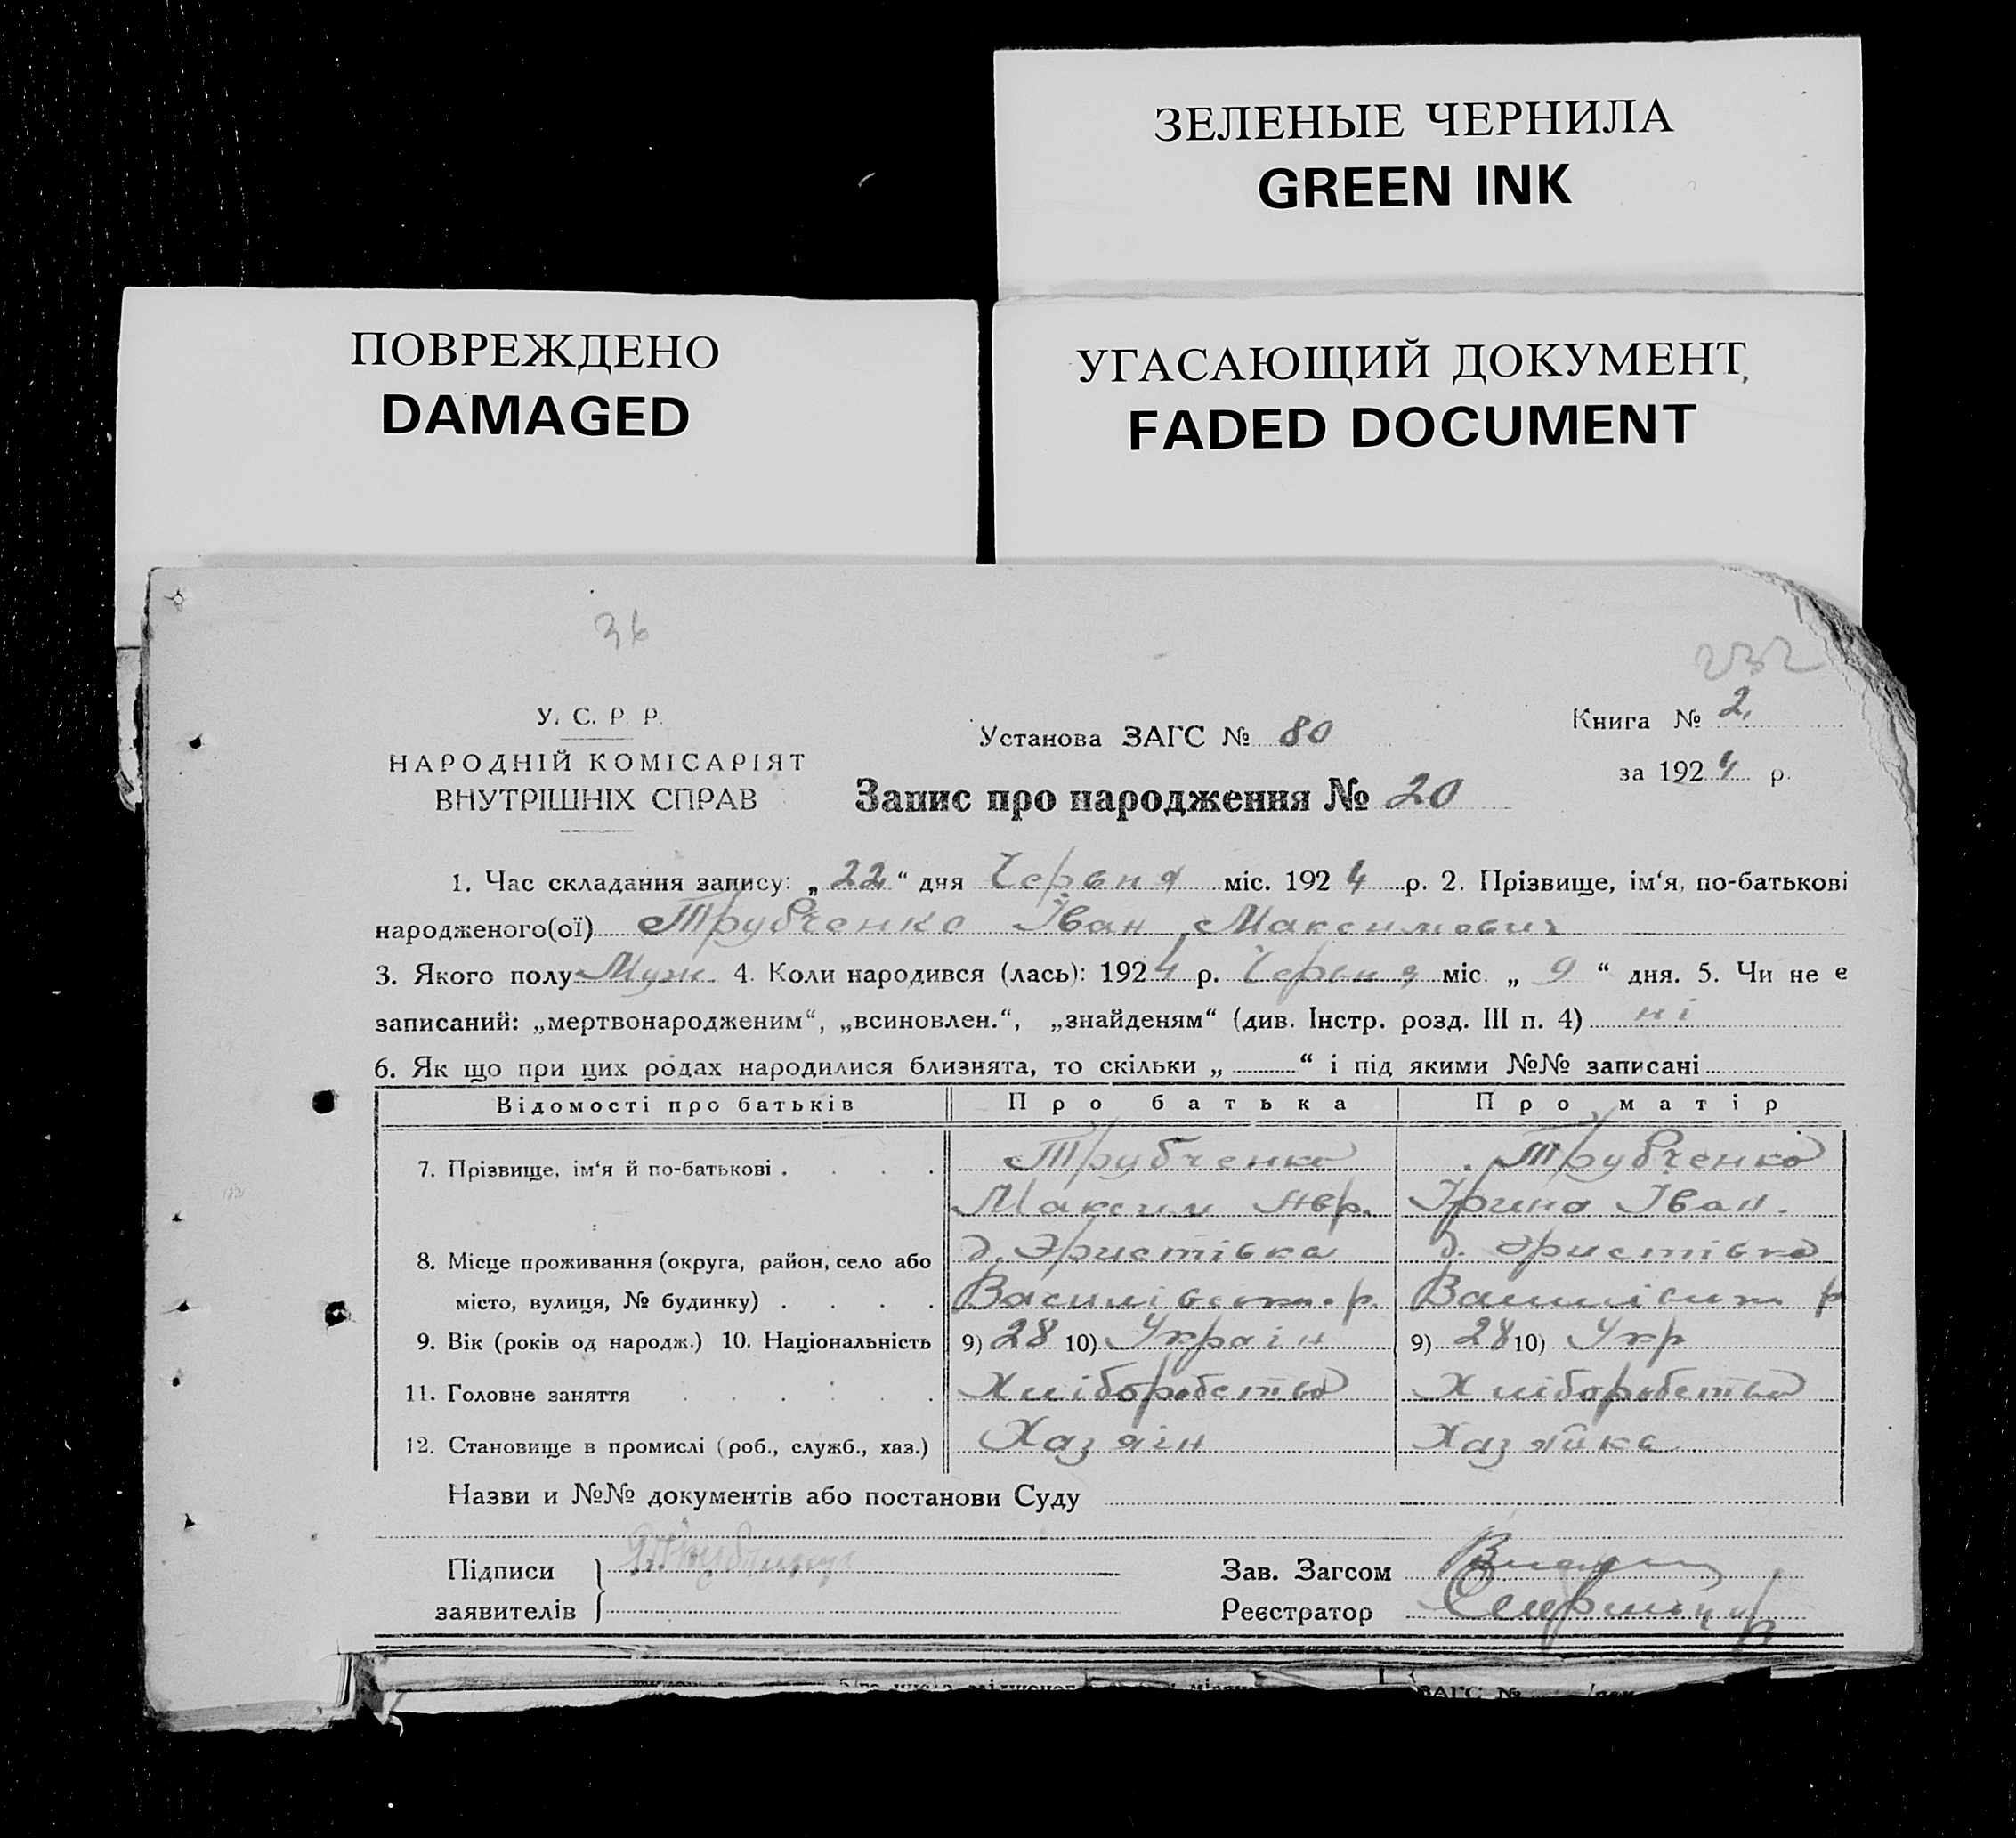 ЗЕЛЕНЫЕ ЧЕРНИЛА
GREEN INK
ПОВРЕЖДЕНО
DAMAGED
УГАСАЮЩИЙ ДОКУМЕНТ
FADED DOCUMENT
36
232
У. С. Р. Р.
НАРОДНІЙ КОМІСАРІЯТ
ВНУТРІШНІХ СПРАВ
Установа ЗАГС № 80
Запис про народження № 20
Книга № 2.
за 1924 р.
1. Час складання запису: „ 22 “ дня Червня міс. 1924 р. 2. Прізвище, ім‘я, по-батькові
народженого(ої) Трубченко Іван Максимович
3. Якого полу Муж. 4. Коли народився (лась): 1924 р. Червня міс. „ 9 “ дня. 5. Чи не є
записаний: „мертвонародженим“, „всиновлен.“, „знайденям“ (див. Інстр. розд. III п. 4) ні
6. Як що при цих родах народилися близнята, то скільки „ “ і під якими №№ записані
Відомості про батьків Про батька Про матір
7. Прізвище, ім‘я й по-батькові . . . . Трубченко Трубченко
Максим Авр. Ірина Іван.
8. Місце проживання (округа, район, село або д. Эристівка д. Эристівка
місто, вулиця, № будинку) . . . . Василівськ. р. р
9. Вік (років од народж.) 10. Національність 9) 28 10) Україн 9) 28 10) Укр
11. Головне заняття . . . . . Хліборобство Хліборобство
12. Становище в промислі (роб., служб., хаз.) Хазяїн Хазяйка
Назви и №№ документів або постанови Суду
Підписи
заявителів
Зав. Загсом
Реєстратор
ЗАГС №